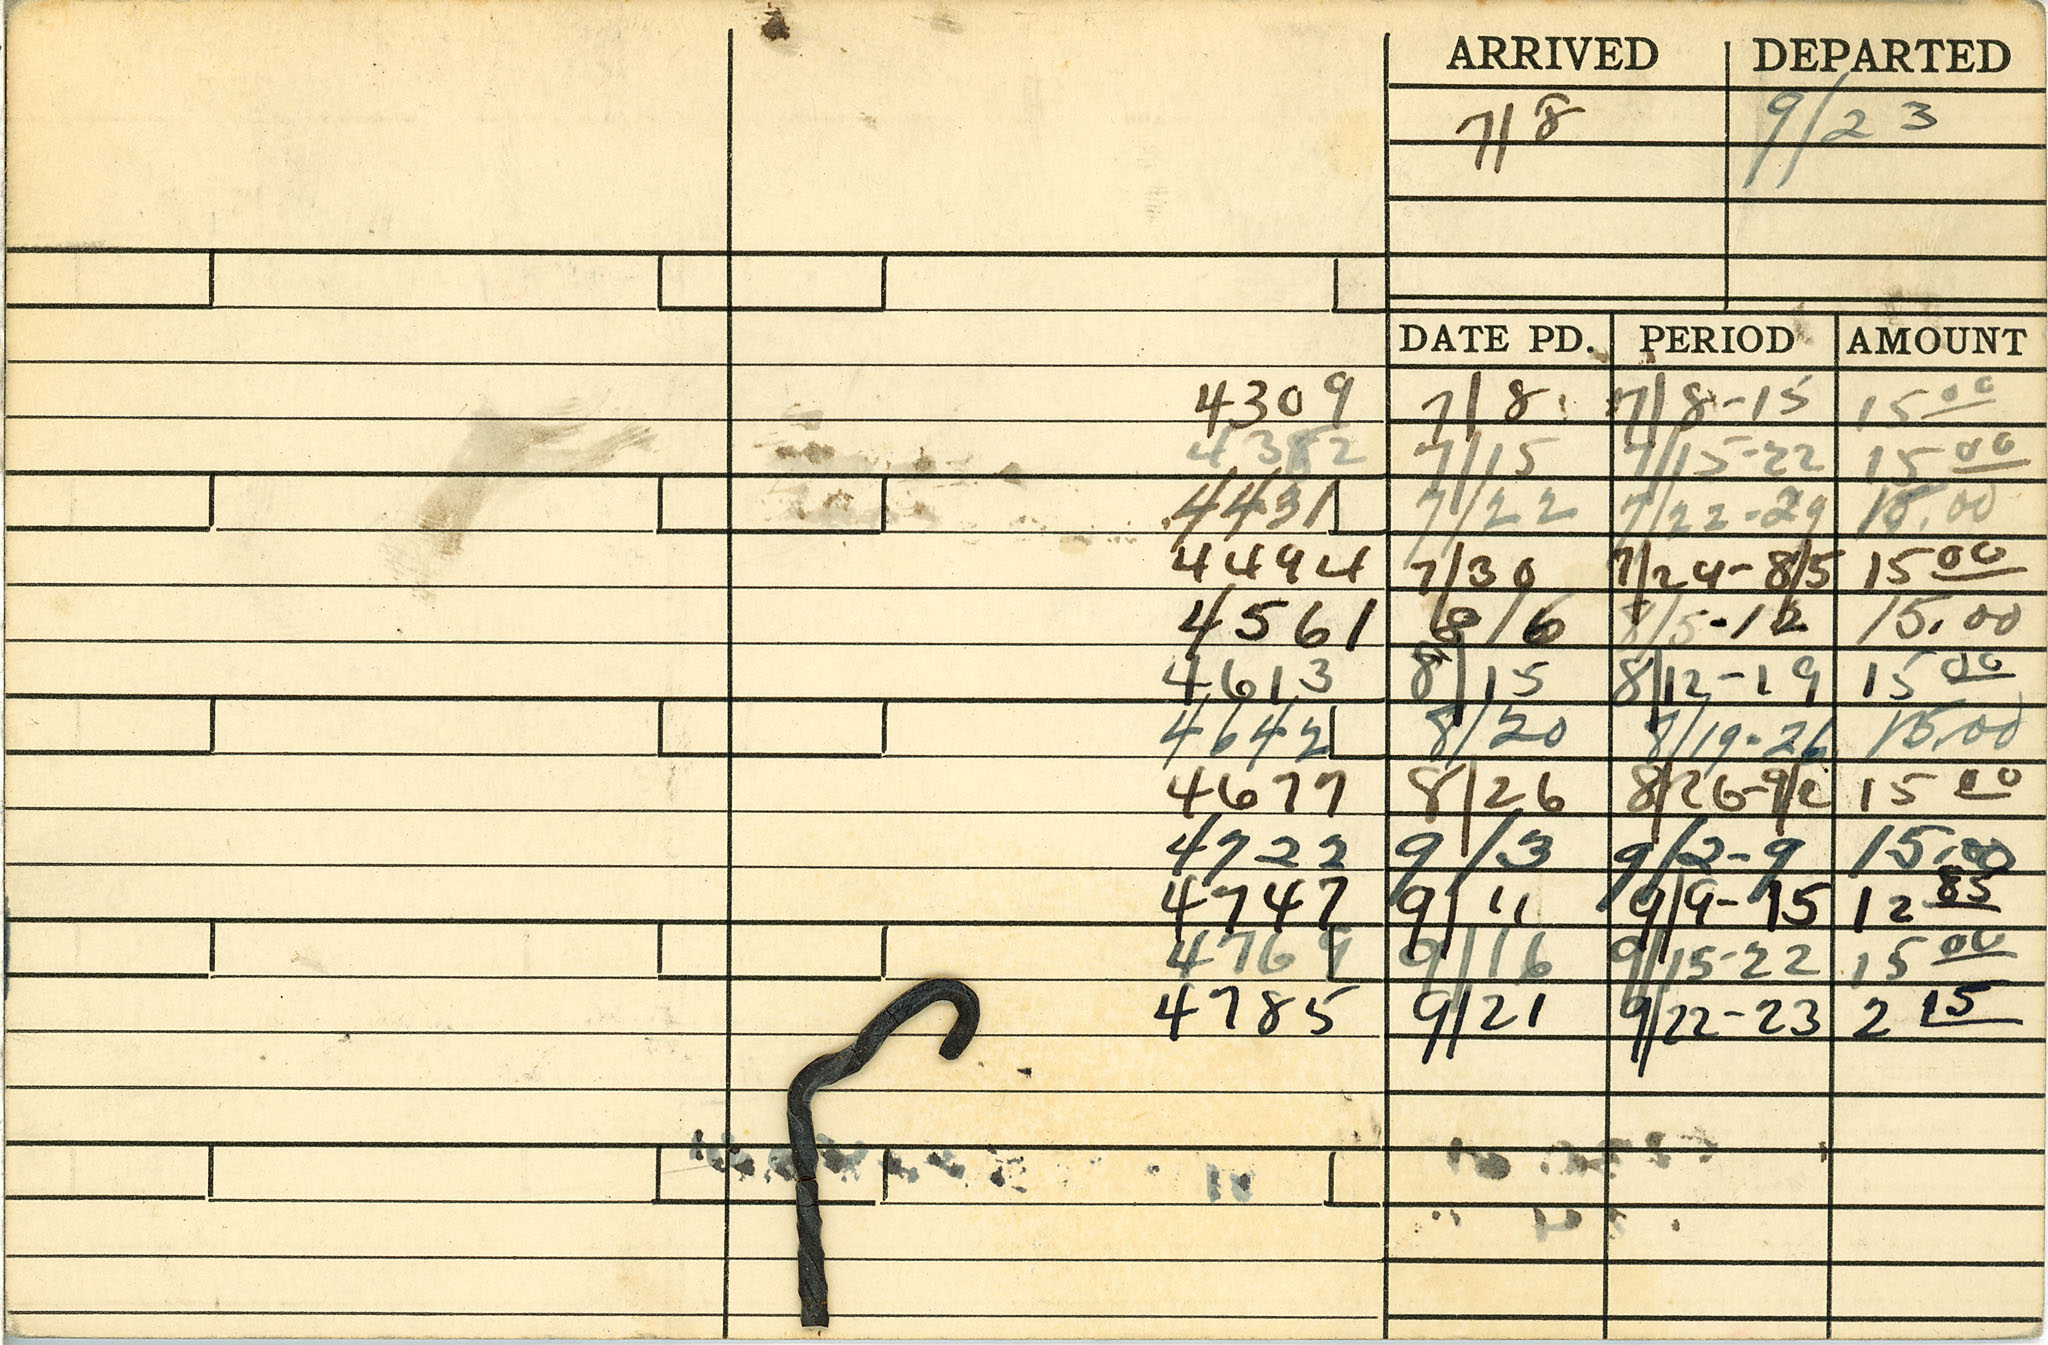 ARRIVED DEPARTED
7/8 9/23
DATE PD. PERIOD AMOUNT
4309 7/8 7/8-15 15 00
4382 7/15 7/15-22 15 00
4431 7/22 7/22-29 15.00
4494 7/30 7/29-8/5 15 00
4561 8/6 8/5-12 15.00
4613 8/15 8/12-19 15 00
4642 8/20 8/19-26 15.00
4677 8/26 8/26-9/2 15 00
4722 9/3 9/2-9 15.00
4747 9/11 9/9-15 12 85
4769 9/16 9/15-22 15 00
4785 9/21 9/22-23 2 15